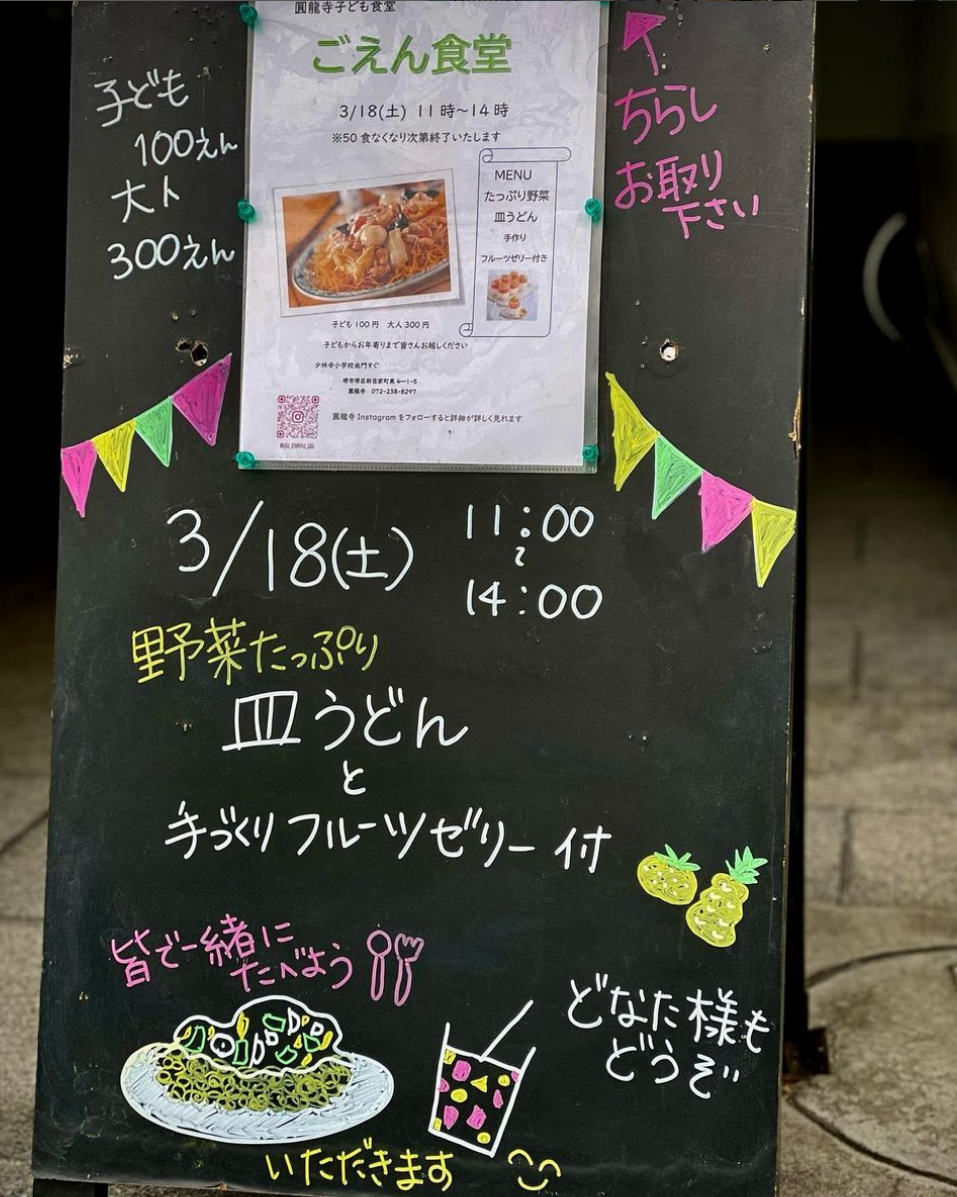 圓龍寺子ども食堂
ごえん食堂
3/18(土) 11時～14時
※50食なくなり次第終了いたします
MENU
たっぷり野菜
皿うどん
手作り
フルーツゼリー付き
子ども100円 大人300円
子どもからお年寄りまで皆さんお越しください
少林寺小学校南門すぐ
堺市堺区新在家町東4-1-5
圓龍寺 072-238-8297
圓龍寺Instagramをフォローすると詳細が詳しく見れます
子ども
100えん
大人
300えん
ちらし
お取り
下さい
3/18(土)
11:00
～
14:00
野菜たっぷり
皿うどん
と
手づくりフルーツゼリー付
皆で一緒に
たべよう
どなた様も
どうぞ
いただきます